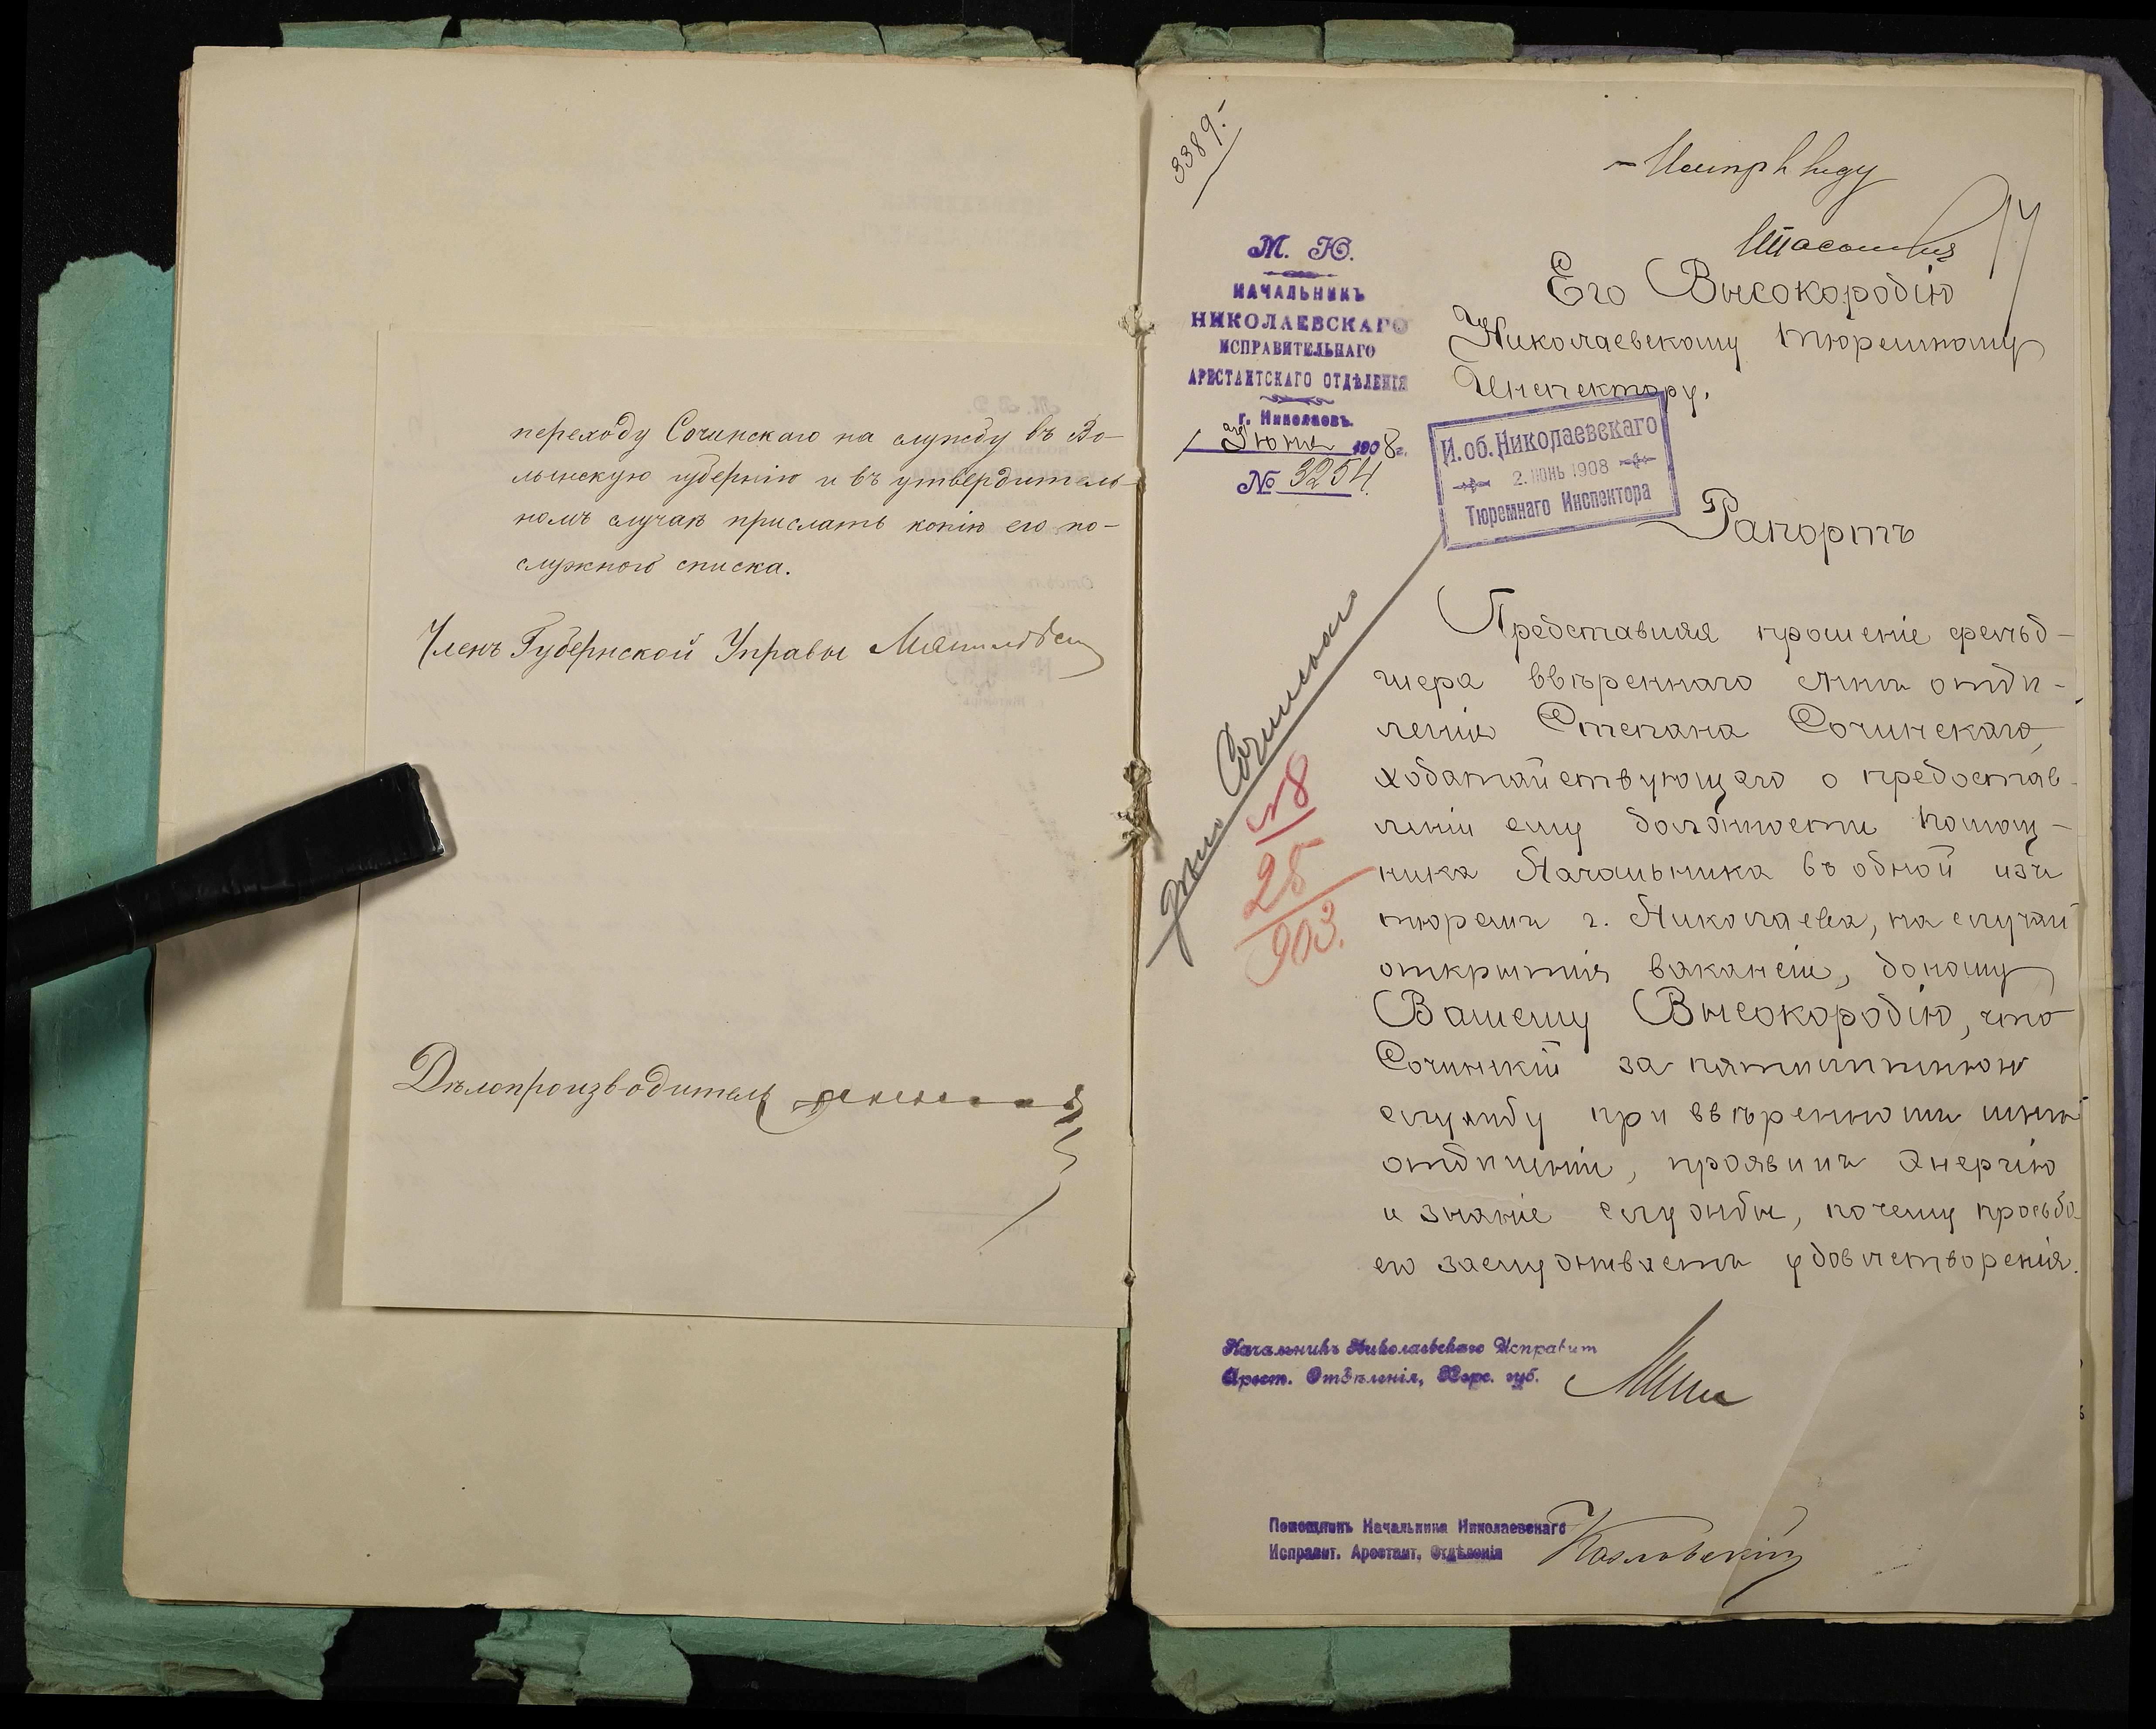 переходу Сочинскаго на службу въ Во-
лынскую губернію и въ утвердитель-
номъ случаѣ прислать копію его по-
служного списка.
Членъ Губернской Управы
Дѣлопроизводитель
3389.
М. Ю.
НАЧАЛЬНИКЪ
НИКОЛАЕВСКАГО
ИСПРАВИТЕЛЬНАГО
АРЕСТАНТСКАГО ОТДѢЛЕНІЯ
г. Николаевъ.
1 Іюня 1908 г.
№ 3254.
Его Высокородію
Николаевскому Тюремному
Инспектору.
И. об. Николаевскаго
2. ІЮНЬ 1908
Тюремнаго Инспектора
Рапортъ
дѣло Сочинскаго
№8
25
903.
Представляя прошеніе фельд-
шера ввѣреннаго мнѣ отдѣ-
ленія Степана Сочинскаго,
ходатайствующаго о предостав-
леніи ему должности помощ-
ника Начальника въ одной изъ
тюремъ г. Николаева, на случай
открытія вакансіи, доношу
Вашему Высокородію, что
Сочинскій за пятилѣтнюю
службу при ввѣренномъ мнѣ
отдѣленіи, проявилъ энергію
и знаніе службы, почему просьба
его заслуживаетъ удовлетворенія.
Начальникъ Николаевскаго Исправит
Арест. Отдѣленія, Херс. губ.
Помощникъ Начальника Николаевскаго
Исправит. Арестант. Отдѣленія
Козловскій